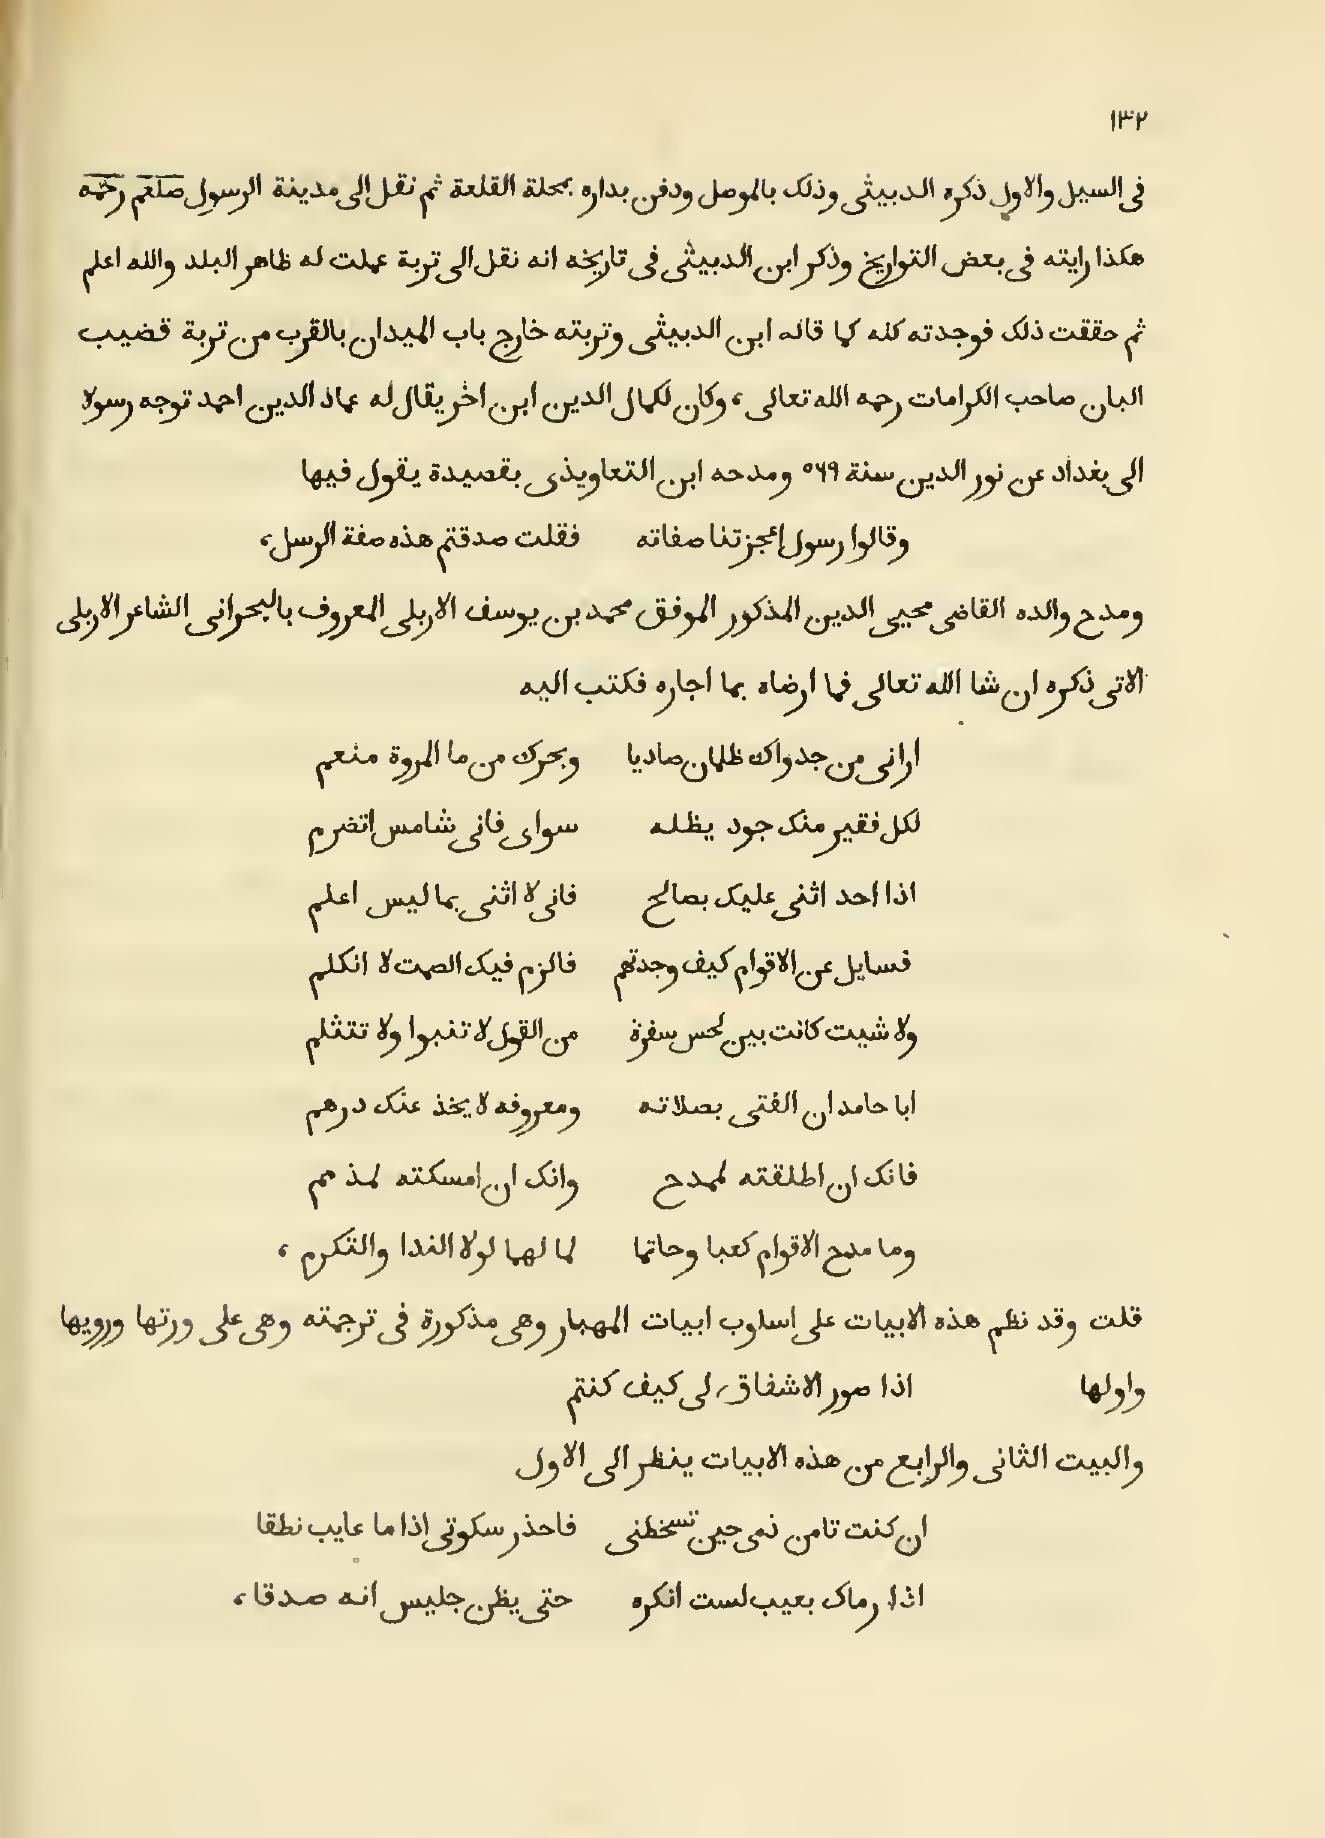 ١٣٢
فى السيل والاول ذكره الدبيثى وذلك بالموصل ودفن بداره بمحلة القلعة ثم نقل الى مدينة الرسول صلعم رحمه
هكذا رايته فى بعض التواريخ وذكر ابن الدبيثى فى تاريخه انه نقل الى تربة عملت له ظاهر البلد والله اعلم
ثم حققت ذلك فوجدته كله كما قاله ابن الدبيثى وتربته خارج باب الميدان بالقرب من تربة قضيب
البان صاحب الكرامات رحمه الله تعالى، وكان لكمال الدين ابن اخر يقال له عماد الدين احمد توجه رسولا
الى بغداد عن نور الدين سنة ٥٦٩ ومدحه ابن التعاويذى بقصيدة يقول فيها
وقالوا رسول اعجزتنا صفاته فقلت صدقتم هذه صفة الرسل،
ومدح والده القاضى محيى الدين المذكور الموفق محمد بن يوسف الاربلى المعروف بالبحرانى الشاعر الاربلى
الاتى ذكره ان شا الله تعالى فما ارضاه بما اجاره فكتب اليه
ارانى من جدواك ظلمان صاديا وبحرك من ما المروة منعم
لكل فقير منك جود يظله سواى فانى شامس اتضرم
اذا احد اثنى عليك بصالح فانى لا اثنى بما ليس اعلم
فسايل عن الاقوام كيف وجدتهم فالزم فيك الصمت لا اتكلم
ولا شيت كانت بين لحس سفرة من القول لا تنبوا ولا تتثلم
ابا حامد ان الفتى بصلاته ومعروفه لا يخذ عنك درهم
فانك ان اطلقته لممدح وانك ان امسكته لمذمم
وما مدح الاقوام كعبا وحاتما لما لهما لولا الندا والتكرم،
قلت وقد نظم هذه الابيات على اسلوب ابيات المهيار وهى مذكورة فى ترجمته وهى على ورتها ورويها
واولها اذا صور الاشفاق لى كيف كنتم
والبيت الثانى والرابع من هذه الابيات ينظر الى الاول
ان كنت تامن ذمى حين تسخطنى فاحذر سكوتى اذا ما عايب نطقا
اذا رماك بعيب لست انكره حتى يظن جليس انه صدقا،